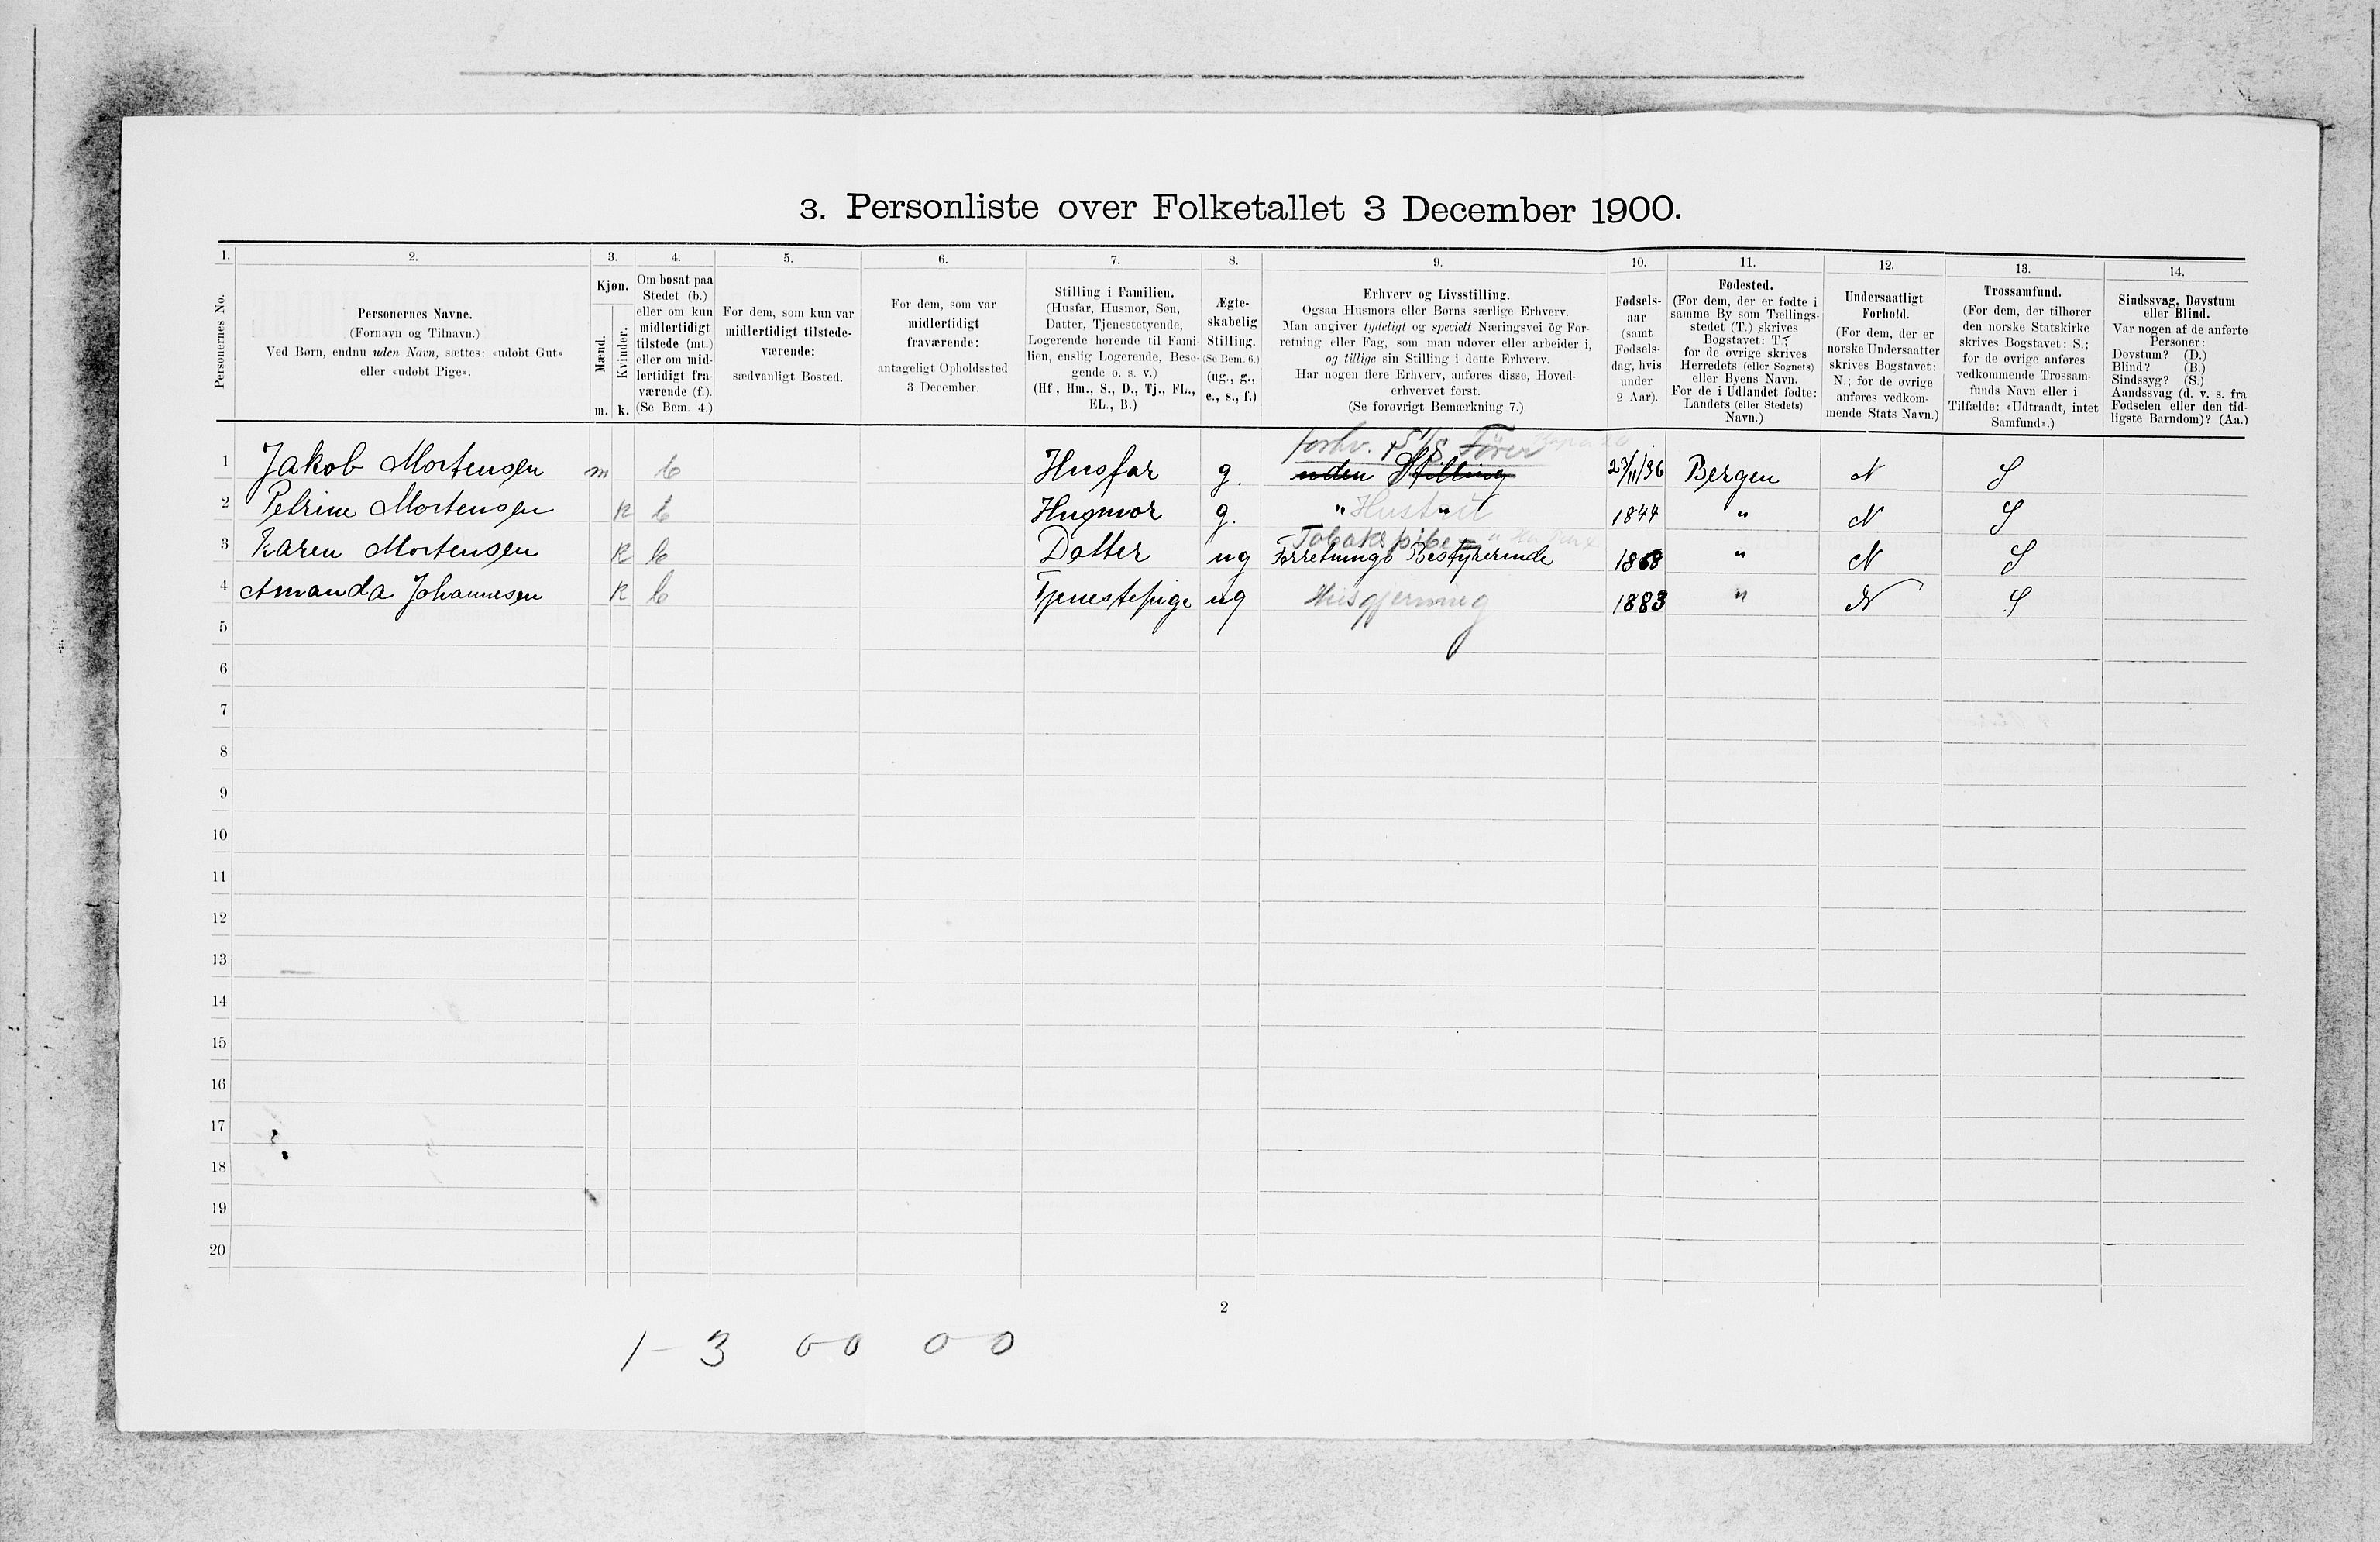 3. Personliste over Folketallet 3 December 1900.
1. 2. 3. 4. 5. 6. 7. 8. 9. 10. 11. 12. 13. 14.
Personernes No.
Personernes Navne.
(Fornavn og Tilnavn.)
Ved Børn, endnu uden Navn, sættes: «udøbt Gut»
eller «udøbt Pige».
Kjøn.
Mænd.
Kvinder.
m. k.
Om bosat paa
Stedet (b.)
eller om kun
midlertidigt
tilstede (mt.)
eller om mid-
lertidigt fra-
værende (f.).
(Se Bem. 4.)
For dem, som kun var
midlertidigt tilstede-
værende:
sædvanligt Bosted.
For dem, som var
midlertidigt
fraværende:
antageligt Opholdssted
3 December.
Stilling i Familien.
(Husfar, Husmor, Søn,
Datter, Tjenestetyende,
Logerende hørende til Fami-
lien, enslig Logerende, Besø-
gende o. s. v.)
(Hf, Hm., S., D., Tj., FL.,
EL., B.)
Ægte-
skabelig
Stilling.
(Se Bem. 6.)
(ug., g.,
e., s., f.)
Erhverv og Livsstilling.
Ogsaa Husmors eller Børns særlige Erhverv.
Man angiver tydeligt og specielt Næringsvei og For-
retning eller Fag, som man udøver eller arbeider i,
og tillige sin Stilling i dette Erhverv.
Har nogen flere Erhverv, anføres disse, Hoved-
erhvervet først.
(Se forøvrigt Bemærkning 7.)
Fødsels-
aar
(samt
Fødsels-
dag, hvis
under
2 Aar).
Fødested.
(For dem, der er fødte i
samme By som Tællings-
stedet (T.) skrives
Bogstavet: T;
for de øvrige skrives
Herredets (eller Sognets)
eller Byens Navn.
For de i Udlandet fødte:
Landets (eller Stedets)
Navn.)
Undersaatligt
Forhold.
(For dem, der er
norske Undersaatter
skrives Bogstavet:
N.; for de øvrige
anføres vedkom-
mende Stats Navn.)
Trossamfund.
(For dem, der tilhører
den norske Statskirke
skrives Bogstavet: S.;
for de øvrige anføres
vedkommende Trossam-
funds Navn eller i
Tilfælde: «Udtraadt, intet
Samfund».)
Sindssvag, Døvstum
eller Blind.
Var nogen af de anførte
Personer:
Døvstum? (D.)
Blind? (B.)
Sindssyg? (S.)
Aandssvag (d. v. s. fra
Fødselen eller den tid-
ligste Barndom)? (Aa.)
forhv. S/S. Fører
1 Jakob Mortensen m b Husfar g. uden Stilling 23/11/36 Bergen N S
2 Petrine Mortensen k b Husmor g. " Hustru 1844 " N S
Tobakspibe
3 Karen Mortensen k b Datter ug Forretnings Bestyrerinde 1868 " N S
4 Amanda Johannesen k b Tjenestepige ug Husgjerning 1883 " N S
5
6
7
8
9
10
11
12
13
14
15
16
17
18
19
20
2
1 - 3 0-0 0-0